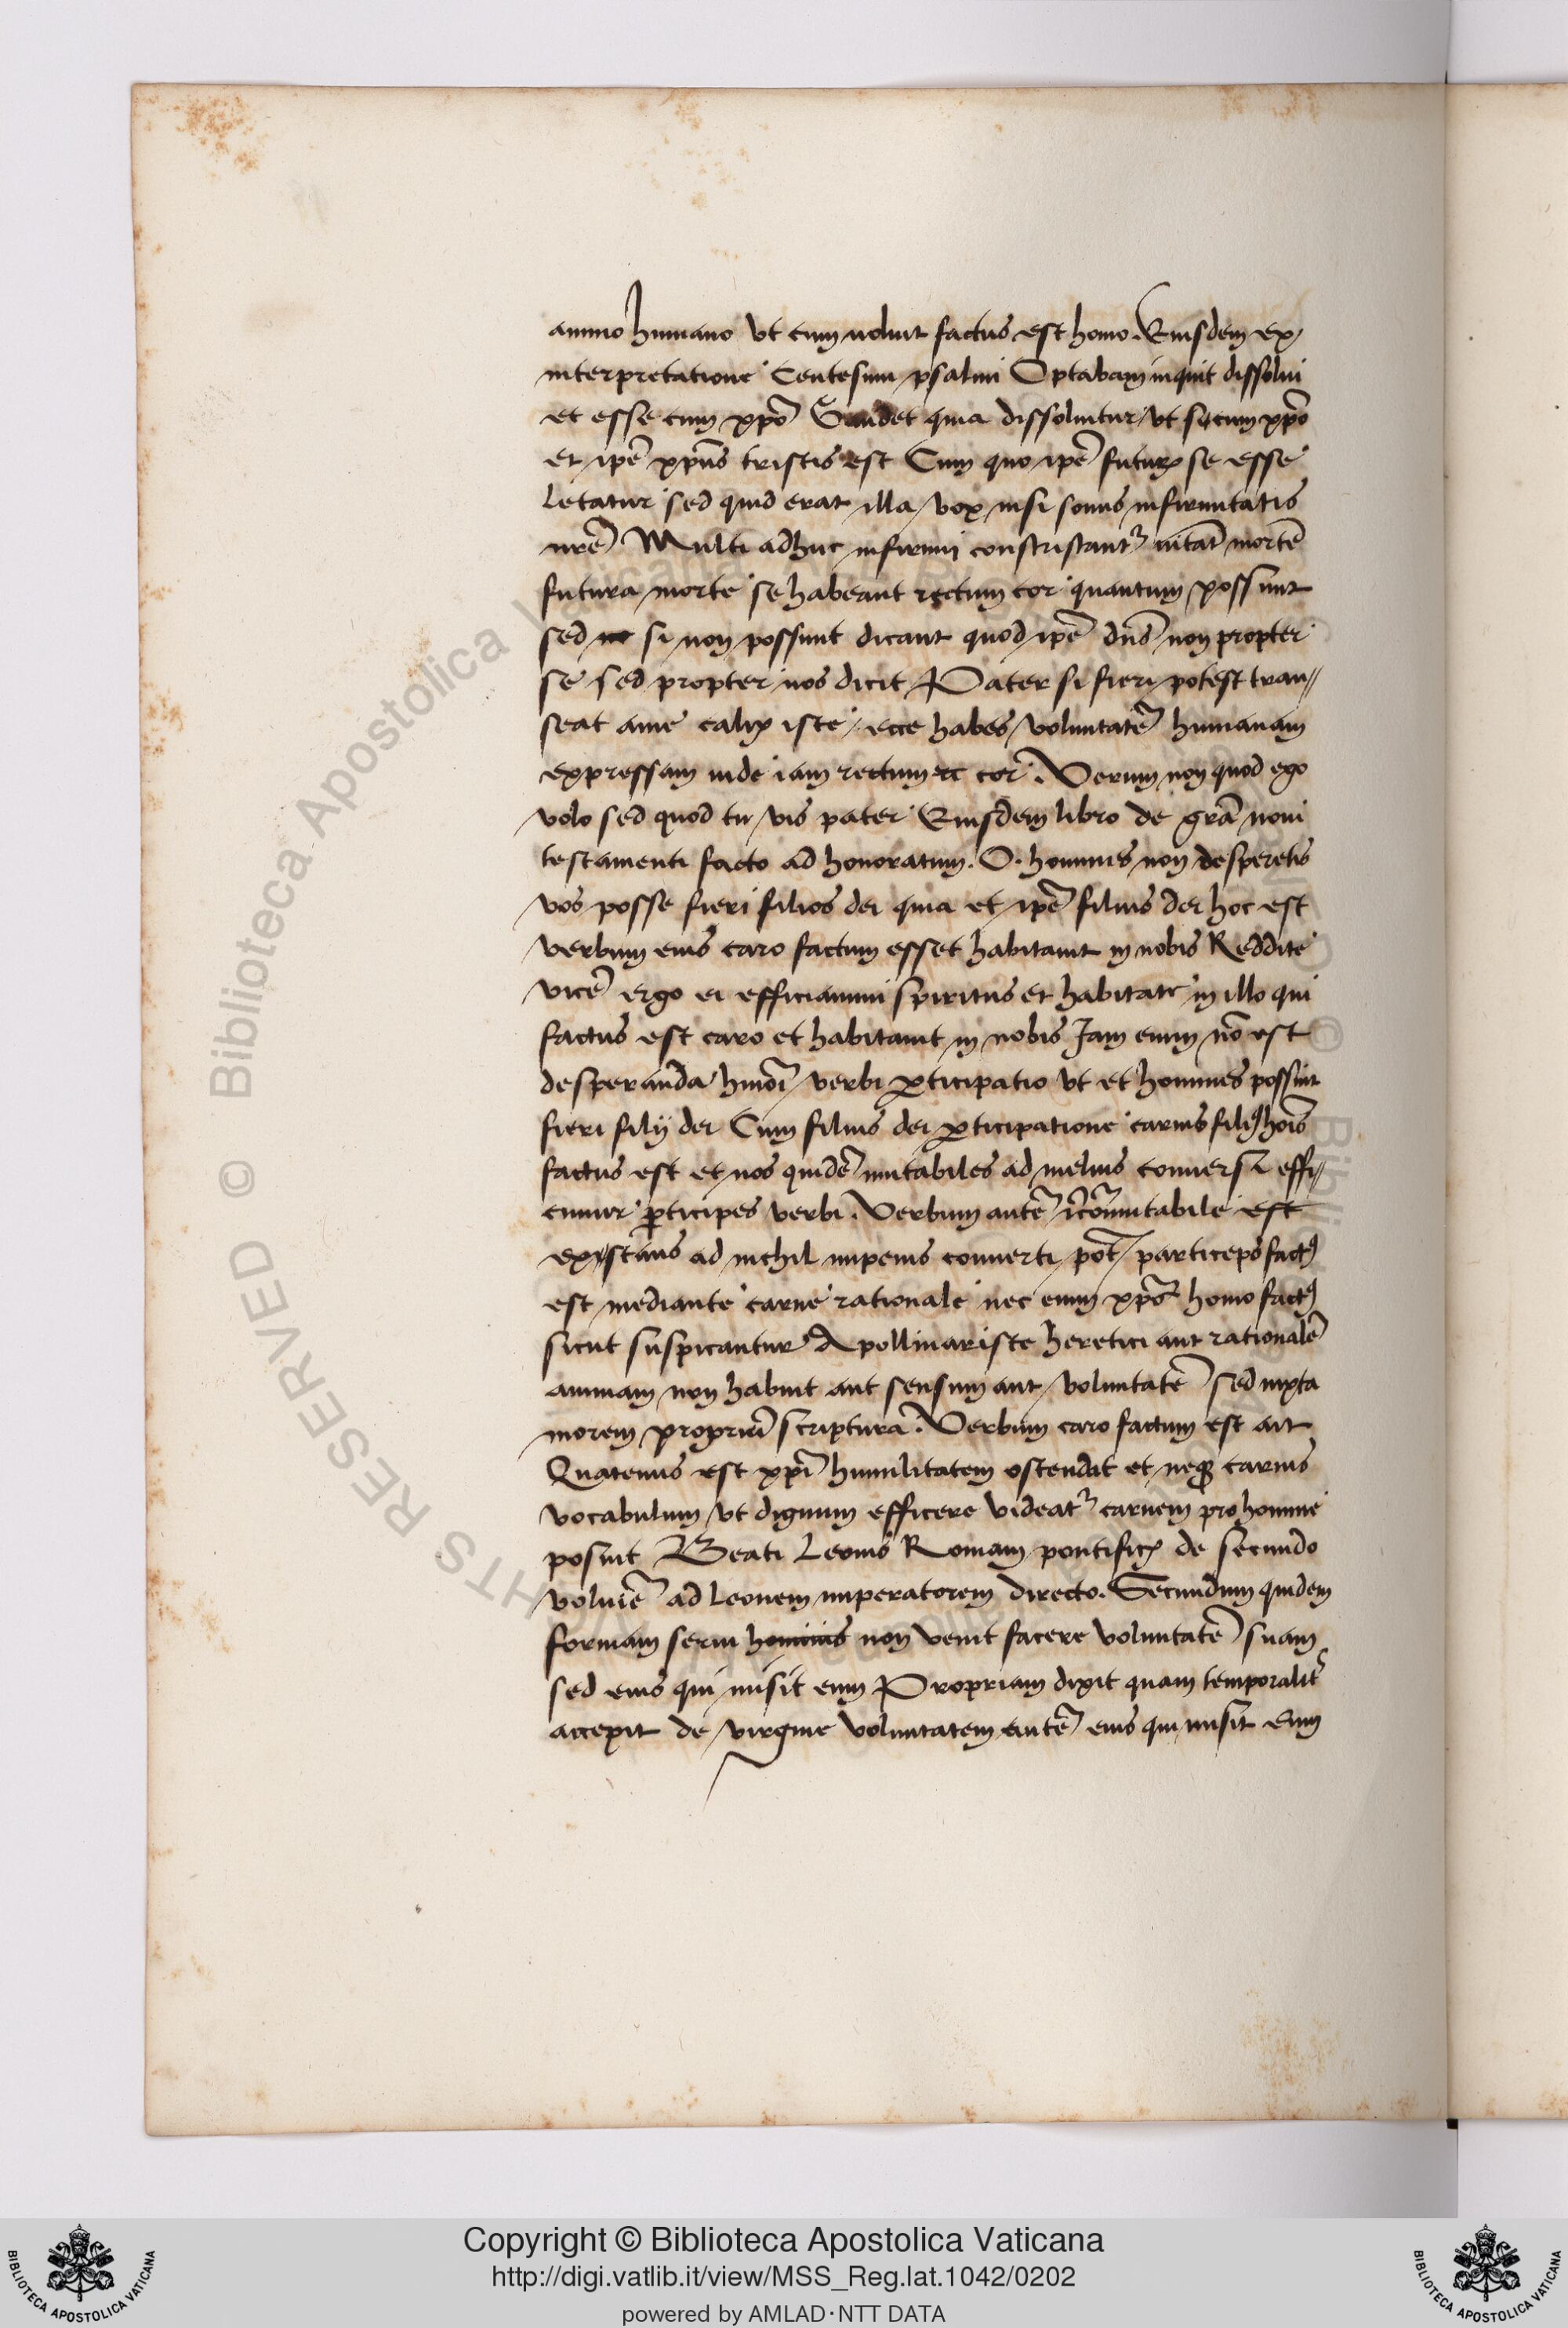 animo humano vt cum voluit factus est homo. Eiusdem ex
interpretatione Centesimi psalmi Optabam inquit dissolui
et esse cum xp̄o Gaudet quia dissoluitur vt sit cum xp̄o
et ip̄e xp̄us tristis est Cum quo ip̄e futurꝫ se esse
letatur sed quid erat illa vox nisi sonus infirmitatis
nr̄e Multi adhuc infirmi constristantr̄ mortē
futura morte se habeant rectum cor quantum possunt
sed si non possunt dicant quod ip̄e dn̄s non propter
se sed propter nos dicit Pater si fieri potest tran//
seat ame calix iste / ecce habes voluntatē humanam
expressam uide iam rectum cor. Verum non quod ego
volo sed quod tu vis pater Eiusdem libro de gr̄a noui
testamenti facto ad honoratum. O. homines non desperetis
vos posse fieri filios dei quia et ip̄e filius dei hoc est
verbum eius caro factum esset habitauit in nobis Reddite
vicē ergo ei efficiamini spiritus et habitate in illo qui
factus est caro et habitauit in nobis Iam enim nō est
desperanda hmōi verbi ꝑticipatio vt et homines possint
fieri filij dei Cum filius dei ꝑticipatione carnis filiꝰ hoīs
factus est et nos quidē mutabiles ad melius conuersi effi//
cimur ꝑticipes verbi. Verbum autē īcōmutabile est
existans ad nichil imperius conuerti pōt particeps factꝰ
est mediante carne rationale nec enim xp̄s homo factꝰ
sicut suspicantur Apollinariste heretici aut rationalē
animam non habuit aut sensum aut voluntatē sed iuxta
morem propriū scriptura. Verbum caro factum est ait
Quatenus est xp̄i humilitatem ostendat et neqꝫ carnis
vocabulum vt dignum efficere videatr̄ carnem pro homine
posuit Beati Leonis Romam pontificꝫ de secundo
volumē ad Leonem imperatorem directo. Secundum quidem
formam serui hominis non venit facere voluntatē suam
sed eius qui misit eum Propriam dixit quam temporalit̄
accepit de virgine voluntatem autē eius qui misit eum
© Biblioteca Apostolica Vaticana
Copyright © Biblioteca Apostolica Vaticana
http://digi.vatlib.it/view/MSS_Reg.lat.1042/0202
powered by AMLAD·NTT DATA
BIBLIOTECA APOSTOLICA VATICANA
BIBLIOTECA APOSTOLICA VATICANA